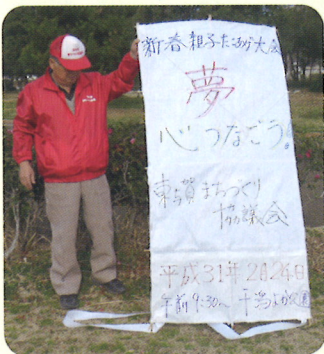 新春親子たこあげ大会
夢
心つなごう!
東与賀まちづくり
協議会
平成31年2月24日
午前9:30〜 干潟よか公園